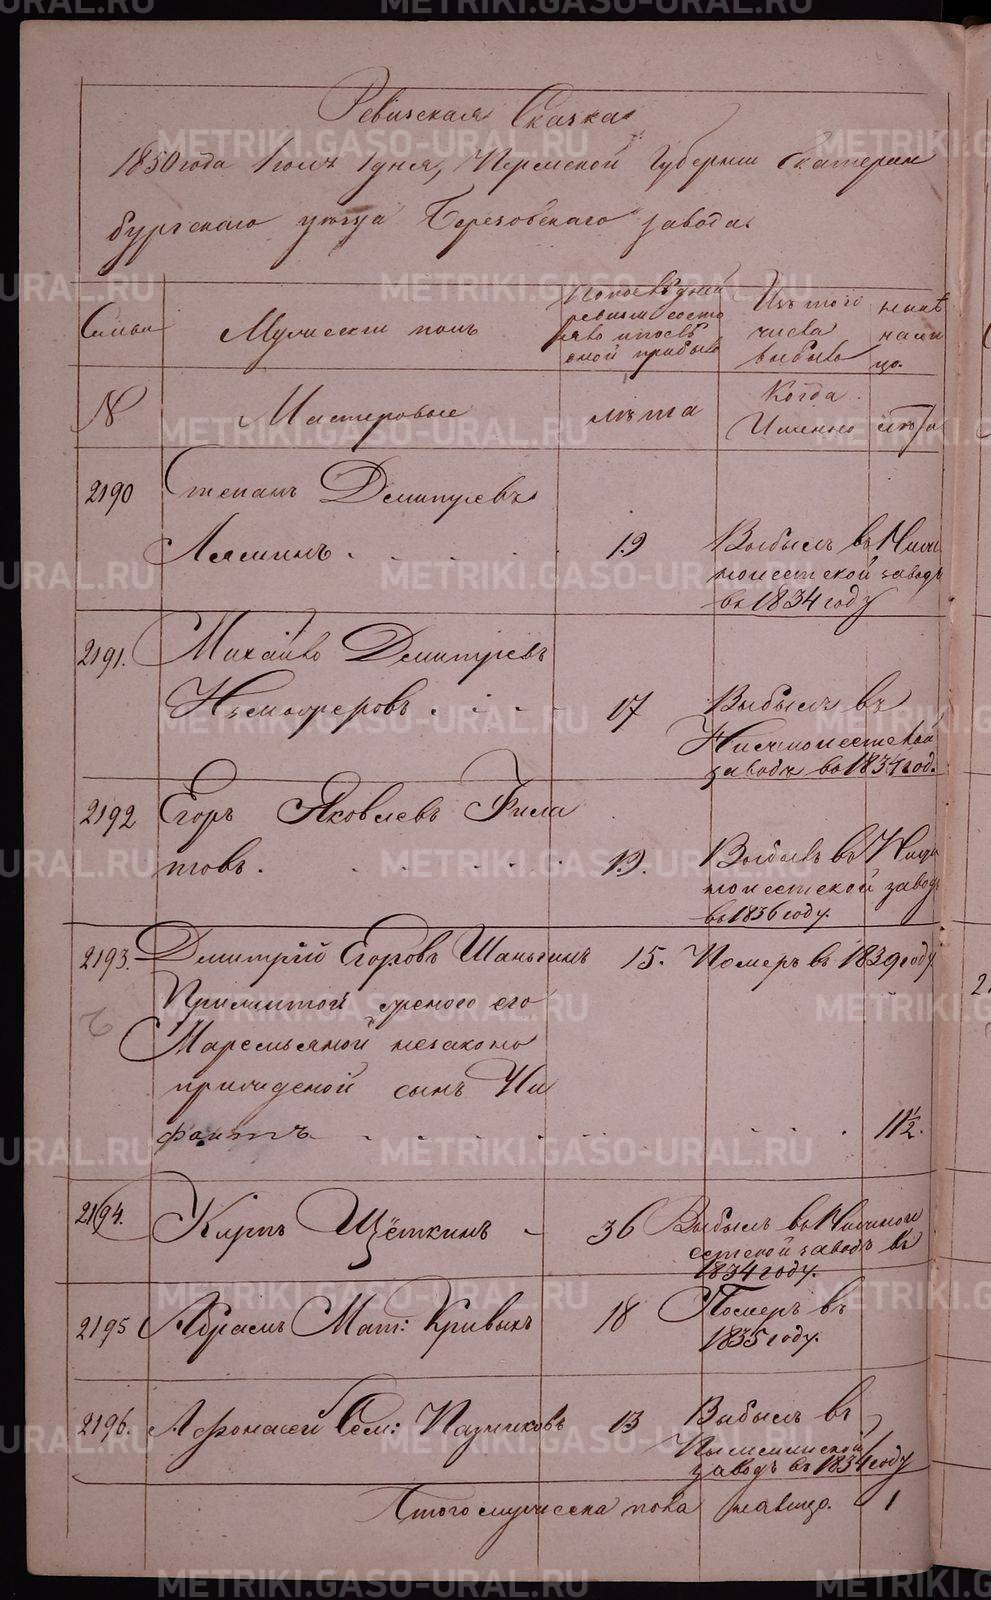 Ревизская Сказка
1850 года Iюля 1 дня, Пермской Губернiи Екатерин
бургскаго уѣзда Березовскаго завода.
Семьи
Мужескiй полъ
По послѣдней
ревизiи состо
яло и послѣ
оной прибыло
Изъ того
числа
выбыло
нынѣ
нали
цо.
№
Мастеровые
лѣта
Когда
Именно
лѣта
2190
Степанъ Дмитрiевъ
Ляминъ
19
Выбылъ въ Нижне
исетской заводъ
въ 1834 году
2191.
Михайло Дмитрiевъ
17
Выбылъ въ
Нижнеисетской
заводъ въ 1834 год.
2192
Егоръ Яковлевъ Фила
товъ.
19.
Выбылъ въ Нижне
исетской завод
въ 1836 году.
2193.
Дмитрiй Егоровъ Шаньгинъ
15.
Померъ въ 1839 году.
Прижитой женою его
Маремьяной незаконо
прижиденой сынъ Ни
фантъ
11 1/2.
2194.
Карпъ Щёткинъ
36
Выбылъ въ Нижнеи
сетской заводъ въ
1834 году.
2195
Абрамъ Мат: Кривыхъ
18
Померъ въ
1835 году.
2196.
Афонасей Сем: Пазниковъ
13
Выбылъ въ
Пышминской
заводъ въ 1834 году
Итого мужеска пола налицо. 1
METRIKI.GASO-URAL.RU